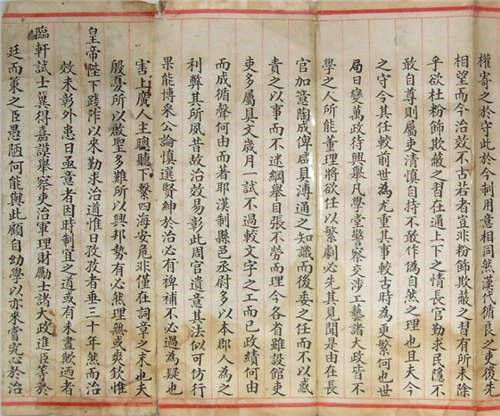 權寄之於守此於今制用意相同然漢代循良之吏後先
相望而今治效不古若者豈非粉飾欺蔽之習有所未除
乎欲杜粉飾欺蔽之習在通上下之情長官勤求民隱不
敢自尊則屬吏清慎自持不敢作偽自然之理也且夫今
之守令其任較前世為尤重其事較古時為更繁何也世
局日變萬政待興舉凡學堂警察交涉工藝諸大政皆不
學之人所能董理將欲任以繁劇必先其見聞是由在長
官加意陶成俾屬員溥通之知識而後委之任而不以惑
責之以事而不迷綱舉目張不勞而理今各省雖設館課
吏多屬具文歲月一試不過較文字之工而已政績何由
而成循聲何由而著耶漢制縣邑丞尉多以本郡人為之
利弊其所夙昔故治效易彰此周官遺意其法似可仿行
果能博采公論慎選賢紳於治必有裨補不必過為疑也
害上廣人主聰聽下繫四海安危非僅在詞章之末也夫
殷憂所以啟聖多難所以興邦勢有必然理無或爽欽惟
皇帝陛下踐阼以來勤求治道惟日孜孜者垂三十年然而治
效未彰外患日亟意者因時制宜之道或有未盡歟邇者
臨軒試士冀得嘉謨舉察吏治軍理財勵士諸大政進臣等於
廷而策之臣愚陋何能與此顧自幼學以亦來嘗究心於治